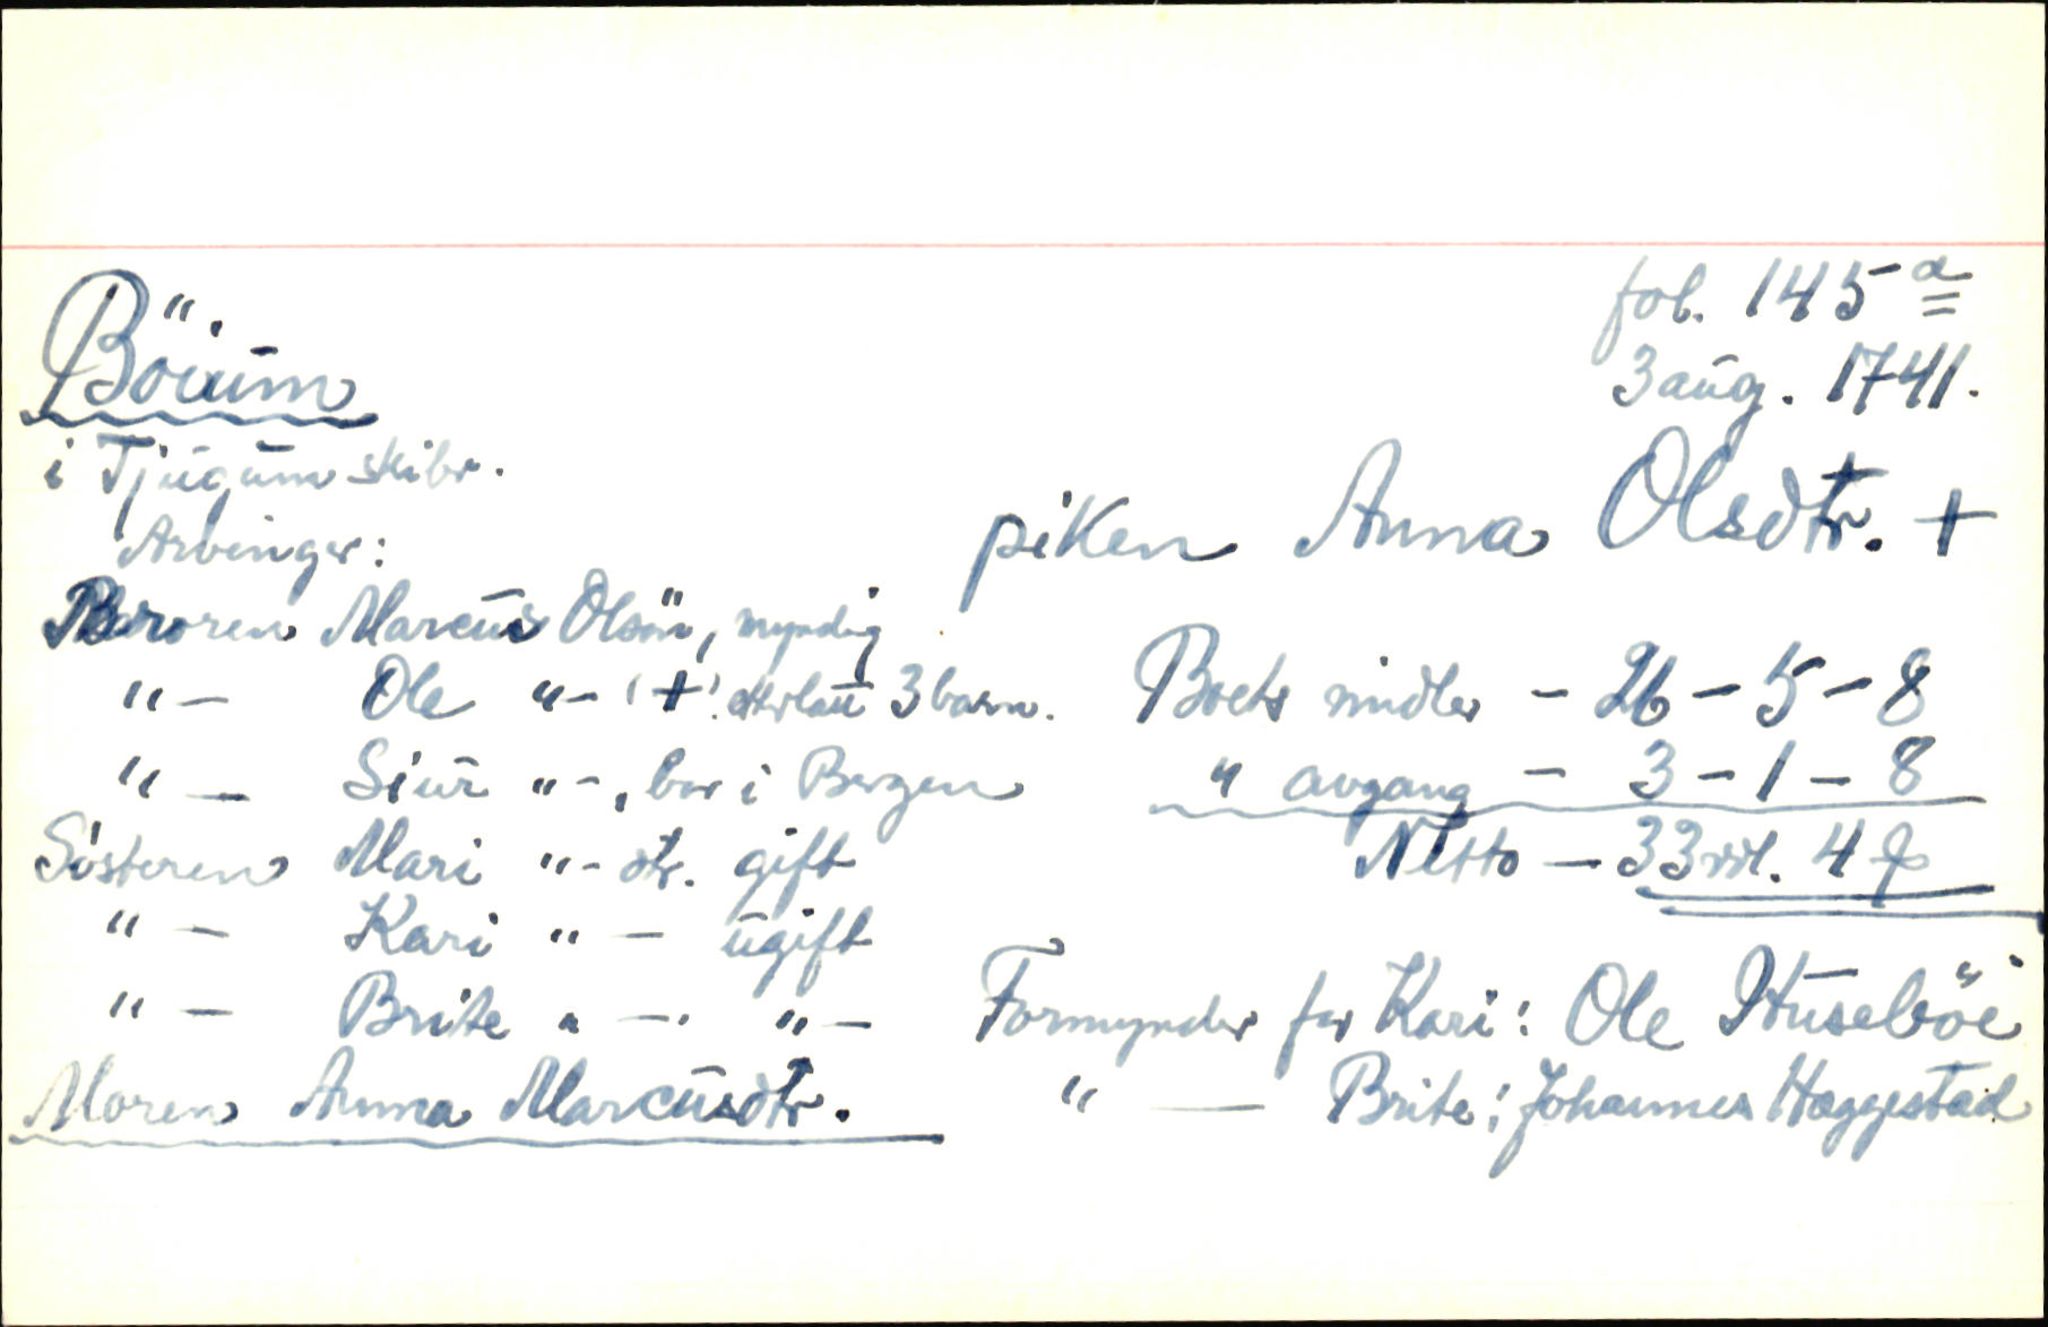 Böium
fol. 145 a
3 aug. 1741.
i Tjugum skibr.
piken Anna Olsdtr. +
Arvinger:
Broren Marcus Olsön, myndig
"— Ole "— (+) etterlau 3 barn.
"— Siur "—, bor i Bergen
Sösteren Mari "— dtr. gift
"— Kari "— ugift
"— Brite "— "—
Moren Anna Marcusdtr.
Boets midler — 26 — 5 — 8
" avgang — 3 — 1 — 8
Netto — 33 rdl. 4 β
Formynder for Kari: Ole Huseböe
"— Brite: Johannes Haggestad